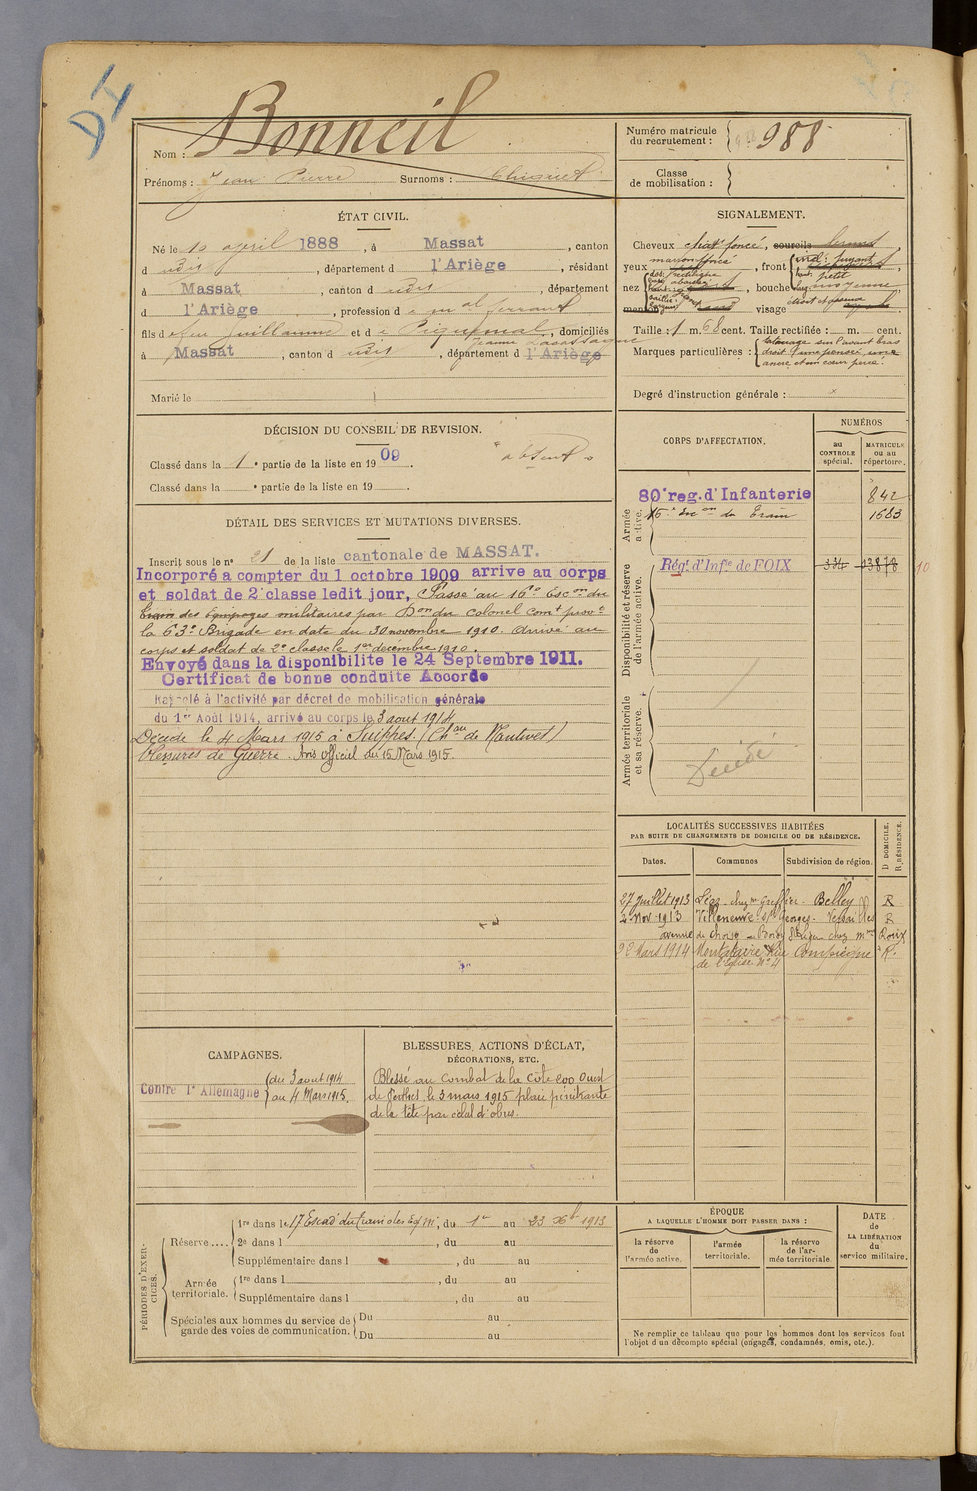 Bonneil
Nom :
Prénoms : Jean Pierre Surnoms :
Numéro matricule
du recrutement : 988
Classe
de mobilisation :
ÉTAT CIVIL.
Né le 10 april 1888, à Massat, canton
d udit, département d l'Ariège, résidant
à Massat, canton d udit, département
d l'Ariège, profession d e mal ferrant
fils d e feu Guillaume et d e Piquemal, domiciliés
Jeanne
à Massat, canton d udit, département d l'Ariège
Marié le
SIGNALEMENT.
Cheveux chatt foncé, sourcils
marron foncé
yeux, front
nez, bouche moyenne
menton visage
Taille : 1 m. 68 cent. Taille rectifiée : m. cent.
Marques particulières : tatouage sur l'avant bras
droit d'une pensée, une
ancre et un cœur percé.
Degré d'instruction générale :
DÉCISION DU CONSEIL DE REVISION.
Classé dans la 1e partie de la liste en 1909. "absent"
Classé dans la e partie de la liste en 19
DÉTAIL DES SERVICES ET MUTATIONS DIVERSES.
Inscrit sous le n° 21 de la liste cantonale de MASSAT.
Incorporé a compter du 1 octobre 1909 arrive au corps
et soldat de 2e classe ledit jour, Passé au 16e Escon du
train des équipages militaires par Don du colonel comt provt
la 63e Brigade en date du 30 novembre 1910. Arrivé au
corps et soldat de 2e classe le 1er decembre 1910.
Envoyé dans la disponibilite le 24 Septembre 1911.
Certificat de bonne conduite Accordé
Rappelé à l'activité par décret de mobilisation générale
du 1er Août 1914, arrivé au corps le 3 aout 1914
Décédé le 4 Mars 1915 à Suippes. (Chau de Nantivet)
blessures de Guerre. Avis officiel du 15 Mars 1915.
CORPS D'AFFECTATION.
NUMÉROS
au
CONTROLE
spécial.
MATRICULE
ou au
répertoire.
Armée
active.
80e reg. d'Infanterie 842
16e Escon du Train 1683
Disponibilité et réserve
de l'armée active.
Régt d'Infie de FOIX 334 13878
Armée territoriale
et sa réserve.
Décédé
LOCALITÉS SUCCESSIVES HABITÉES
PAR SUITE DE CHANGEMENTS DE DOMICILE OU DE RÉSIDENCE.
Dates. Communes Subdivision de région. D DOMICILE. R RÉSIDENCE.
27 juillet 1913 chez Belley R
2 Nov. 1913 Villeneuve St Georges. Versailles R
avenue de Choisy chez Mme Roux
28 Mars 1914 Montataire Rue Compiègne R.
de l'Eglise N° 4
CAMPAGNES.
Contre l'Allemagne du 3 aout 1914
au 4 Mars 1915.
BLESSURES, ACTIONS D'ÉCLAT,
DÉCORATIONS, ETC.
Blessé au combat de la côte 200 Ouest
de Perthes, le 3 mars 1915 plaie pénétrante
de la tête par éclat d'obus.
PÉRIODES D'EXERCICES.
Réserve....
1re dans le 17 Escad du train des Eq. M., du 1er au 23 Xbre 1913
2e dans l, du au
Supplémentaire dans l, du au
Armée
territoriale.
1re dans l, du au
Supplémentaire dans l, du au
Spéciales aux hommes du service de
garde des voies de communication.
Du au
Du au
ÉPOQUE
A LAQUELLE L'HOMME DOIT PASSER DANS :
la réserve
de
l'armée active.
l'armée
territoriale.
la réserve
de l'ar-
mée territoriale.
DATE
de
LA LIBÉRATION
du
service militaire.
Ne remplir ce tableau que pour les hommes dont les services font
l'objet d'un décompte spécial (engagés, condamnés, omis, etc.).